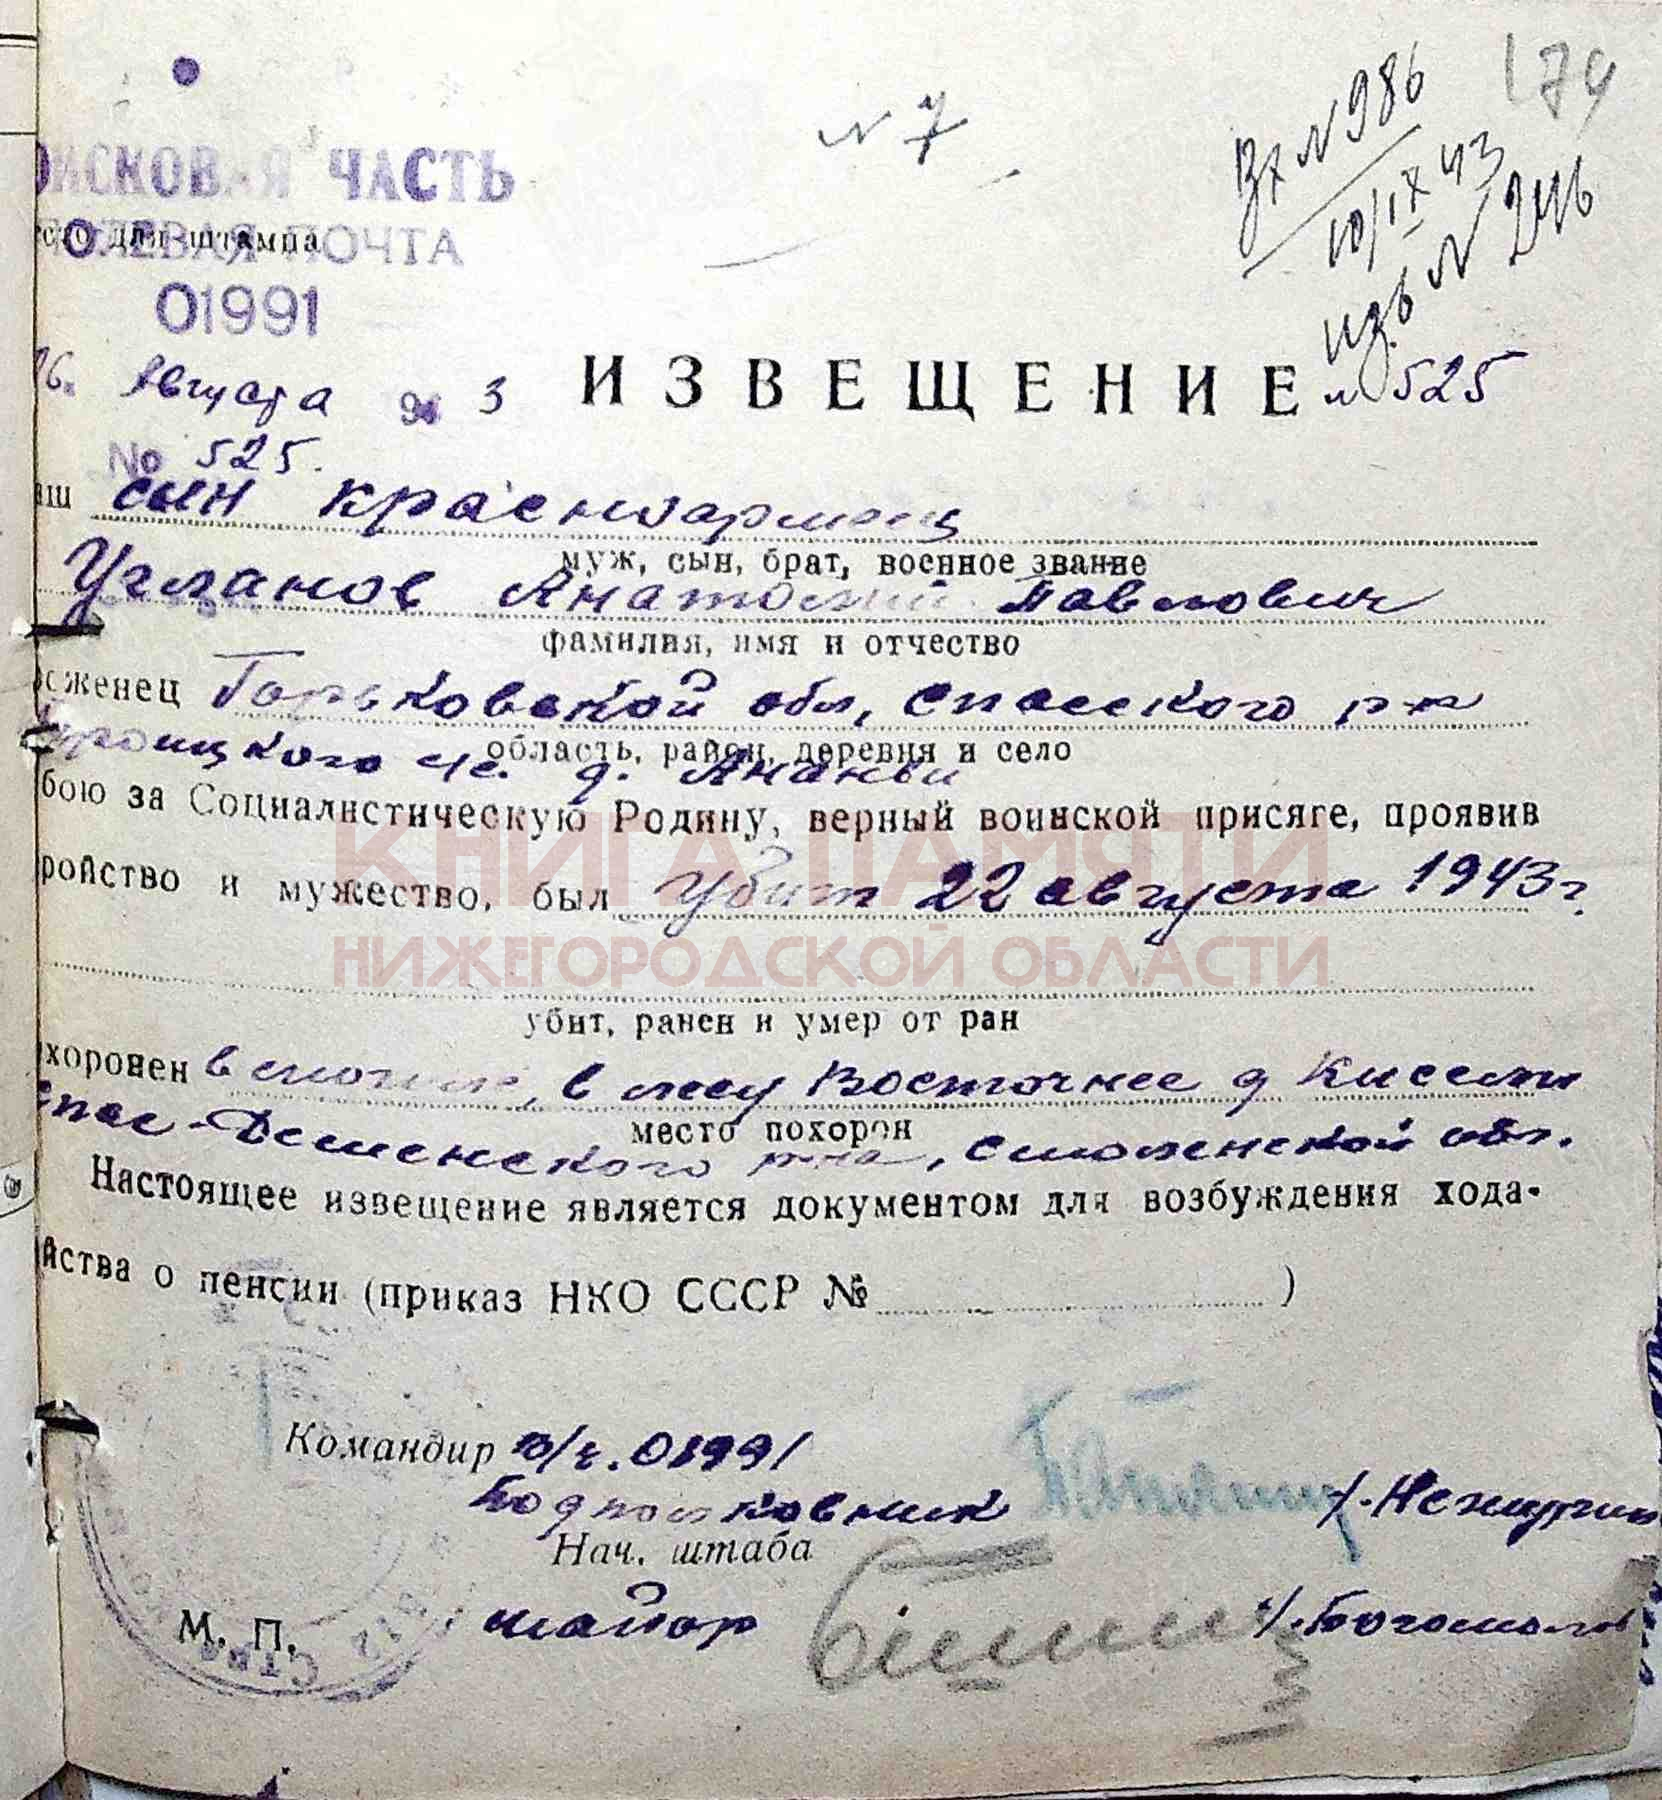 174
N 7
Вх N 986
10/IX 43
изв N 246
ОЙСКОВАЯ ЧАСТЬ
сто для штампа
ПОЛЕВАЯ ПОЧТА
01991
26. августа 194 3
ИЗВЕЩЕНИЕ N 525
No 525.
аш сын красноармеец
муж, сын, брат, военное звание
Угланов Анатолий Павлович
фамилия, имя и отчество
оженец Горьковской обл, Спасского р-н
область, район, деревня и село
Турбицкого с/с. д. Ананьи
бою за Социалистическую Родину, верный воинской присяге, проявив
КНИГА ПАМЯТИ
ройство и мужество, был убит 22 августа 1943 г.
НИЖЕГОРОДСКОЙ ОБЛАСТИ
убит, ранен и умер от ран
хоронен в могиле, в лесу Восточнее д Кисели
место похорон
Спас-Деменского р-на, Смоленской обл.
Настоящее извещение является документом для возбуждения хода-
йства о пенсии (приказ НКО СССР № )
Командир в/ч. 01991
Подполковник
Нач. штаба
М. П. майор /. Богомолов